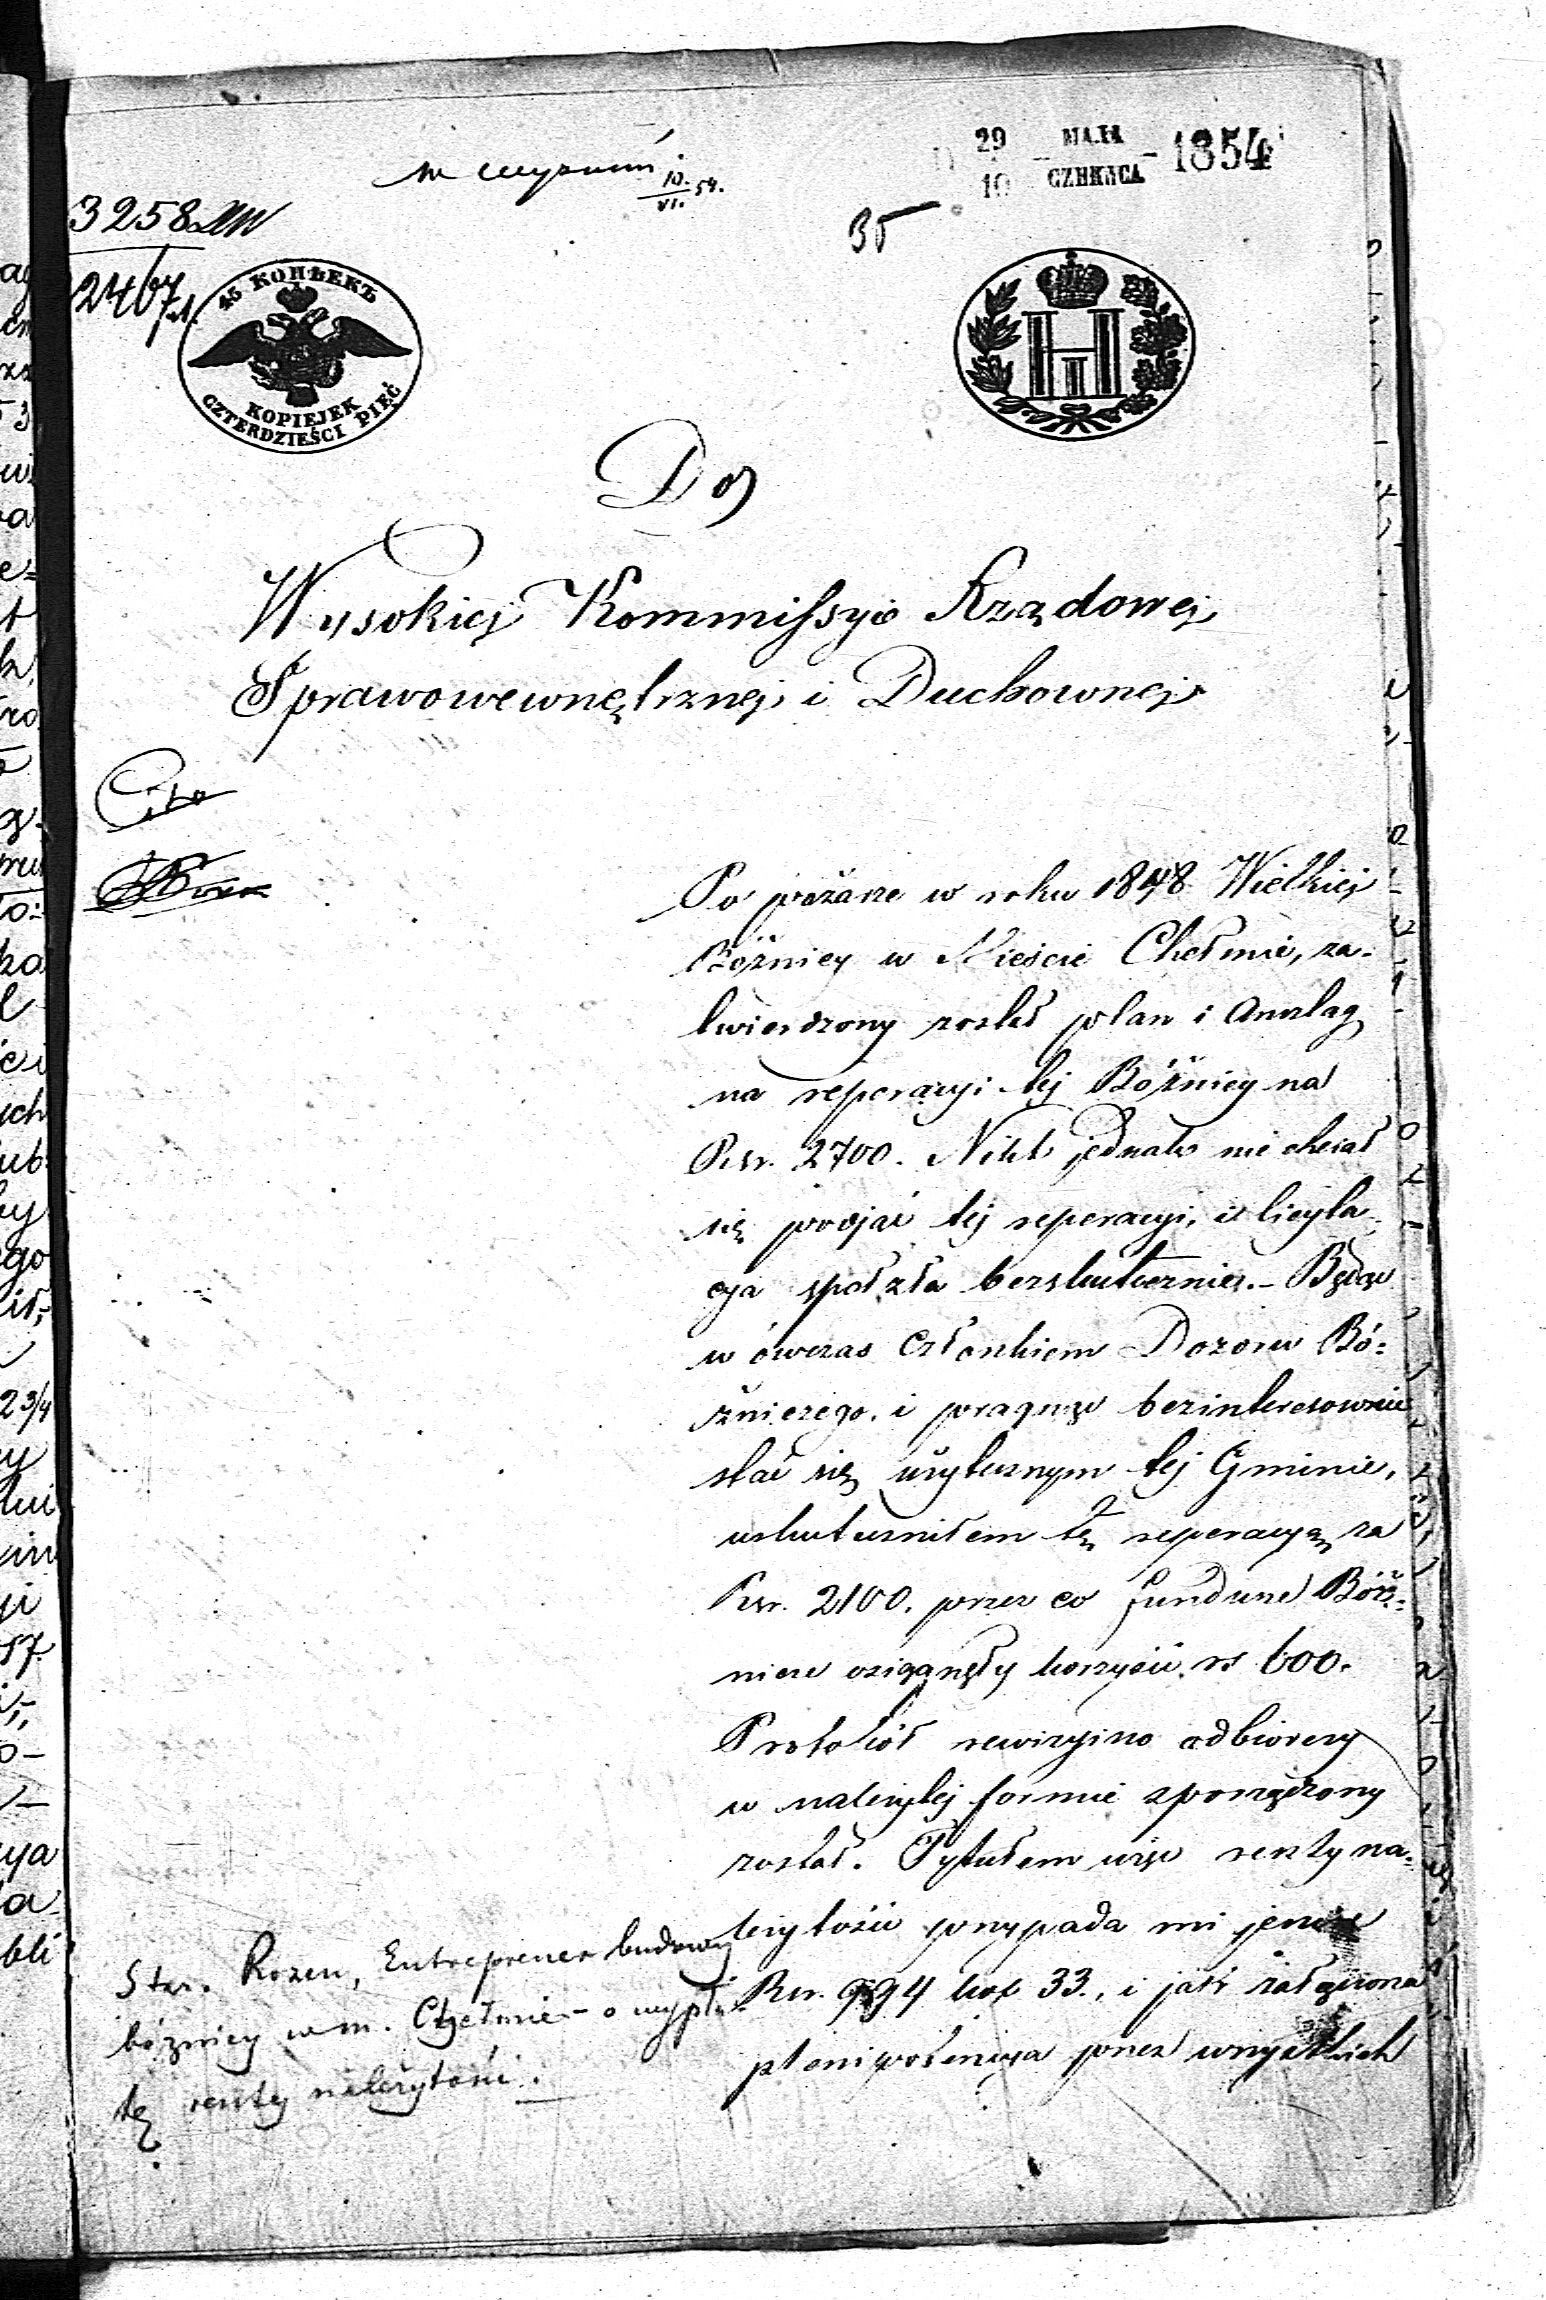 29 MAJA 1854
10 CZERWCA
10/VI. 54.
3258
2467
35
45 КОПѢЕКЪ
KOPIEJEK
CZTERDZIEŚCI PIĘĆ
Do
Wysokiej Kommissyi Rządowej
Spraw wewnętrznej i Duchownej
Cito
Po pożarze w roku 1848 Wielkiej
Bóżnicy w Mieście Chełmie, za-
twierdzony został plan i Anszlag
na reperacyi tej Bóżnicy na
Rsr. 2700. Nikt jednak nie chciał
się podjąć tej reperacyi, i licyta-
cya spełzła bezskutecznie. - Będąc
w ówczas Członkiem Dozoru Bó-
żniczego, i pragnąc bezinteresownie
stać się użytecznym tej Gminie,
uskuteczniłem tę reperacyą za
Rsr. 2100. przez co fundusze Bóż-
nicze osiągnęły korzyści rs 600.
Protokół rewizyino odbiorczy
w należytej formie sporządzony
został. Tytułem więc reszty na-
leżytości przypada mi jeszcze
Rsr. 994 kop 33., i jak załączona
plenipotencya przez wszystkich
Star. Rozen, Entreprener budowy
bóżnicy w m. Chełmie - o wypła-
tę reszty należytości.